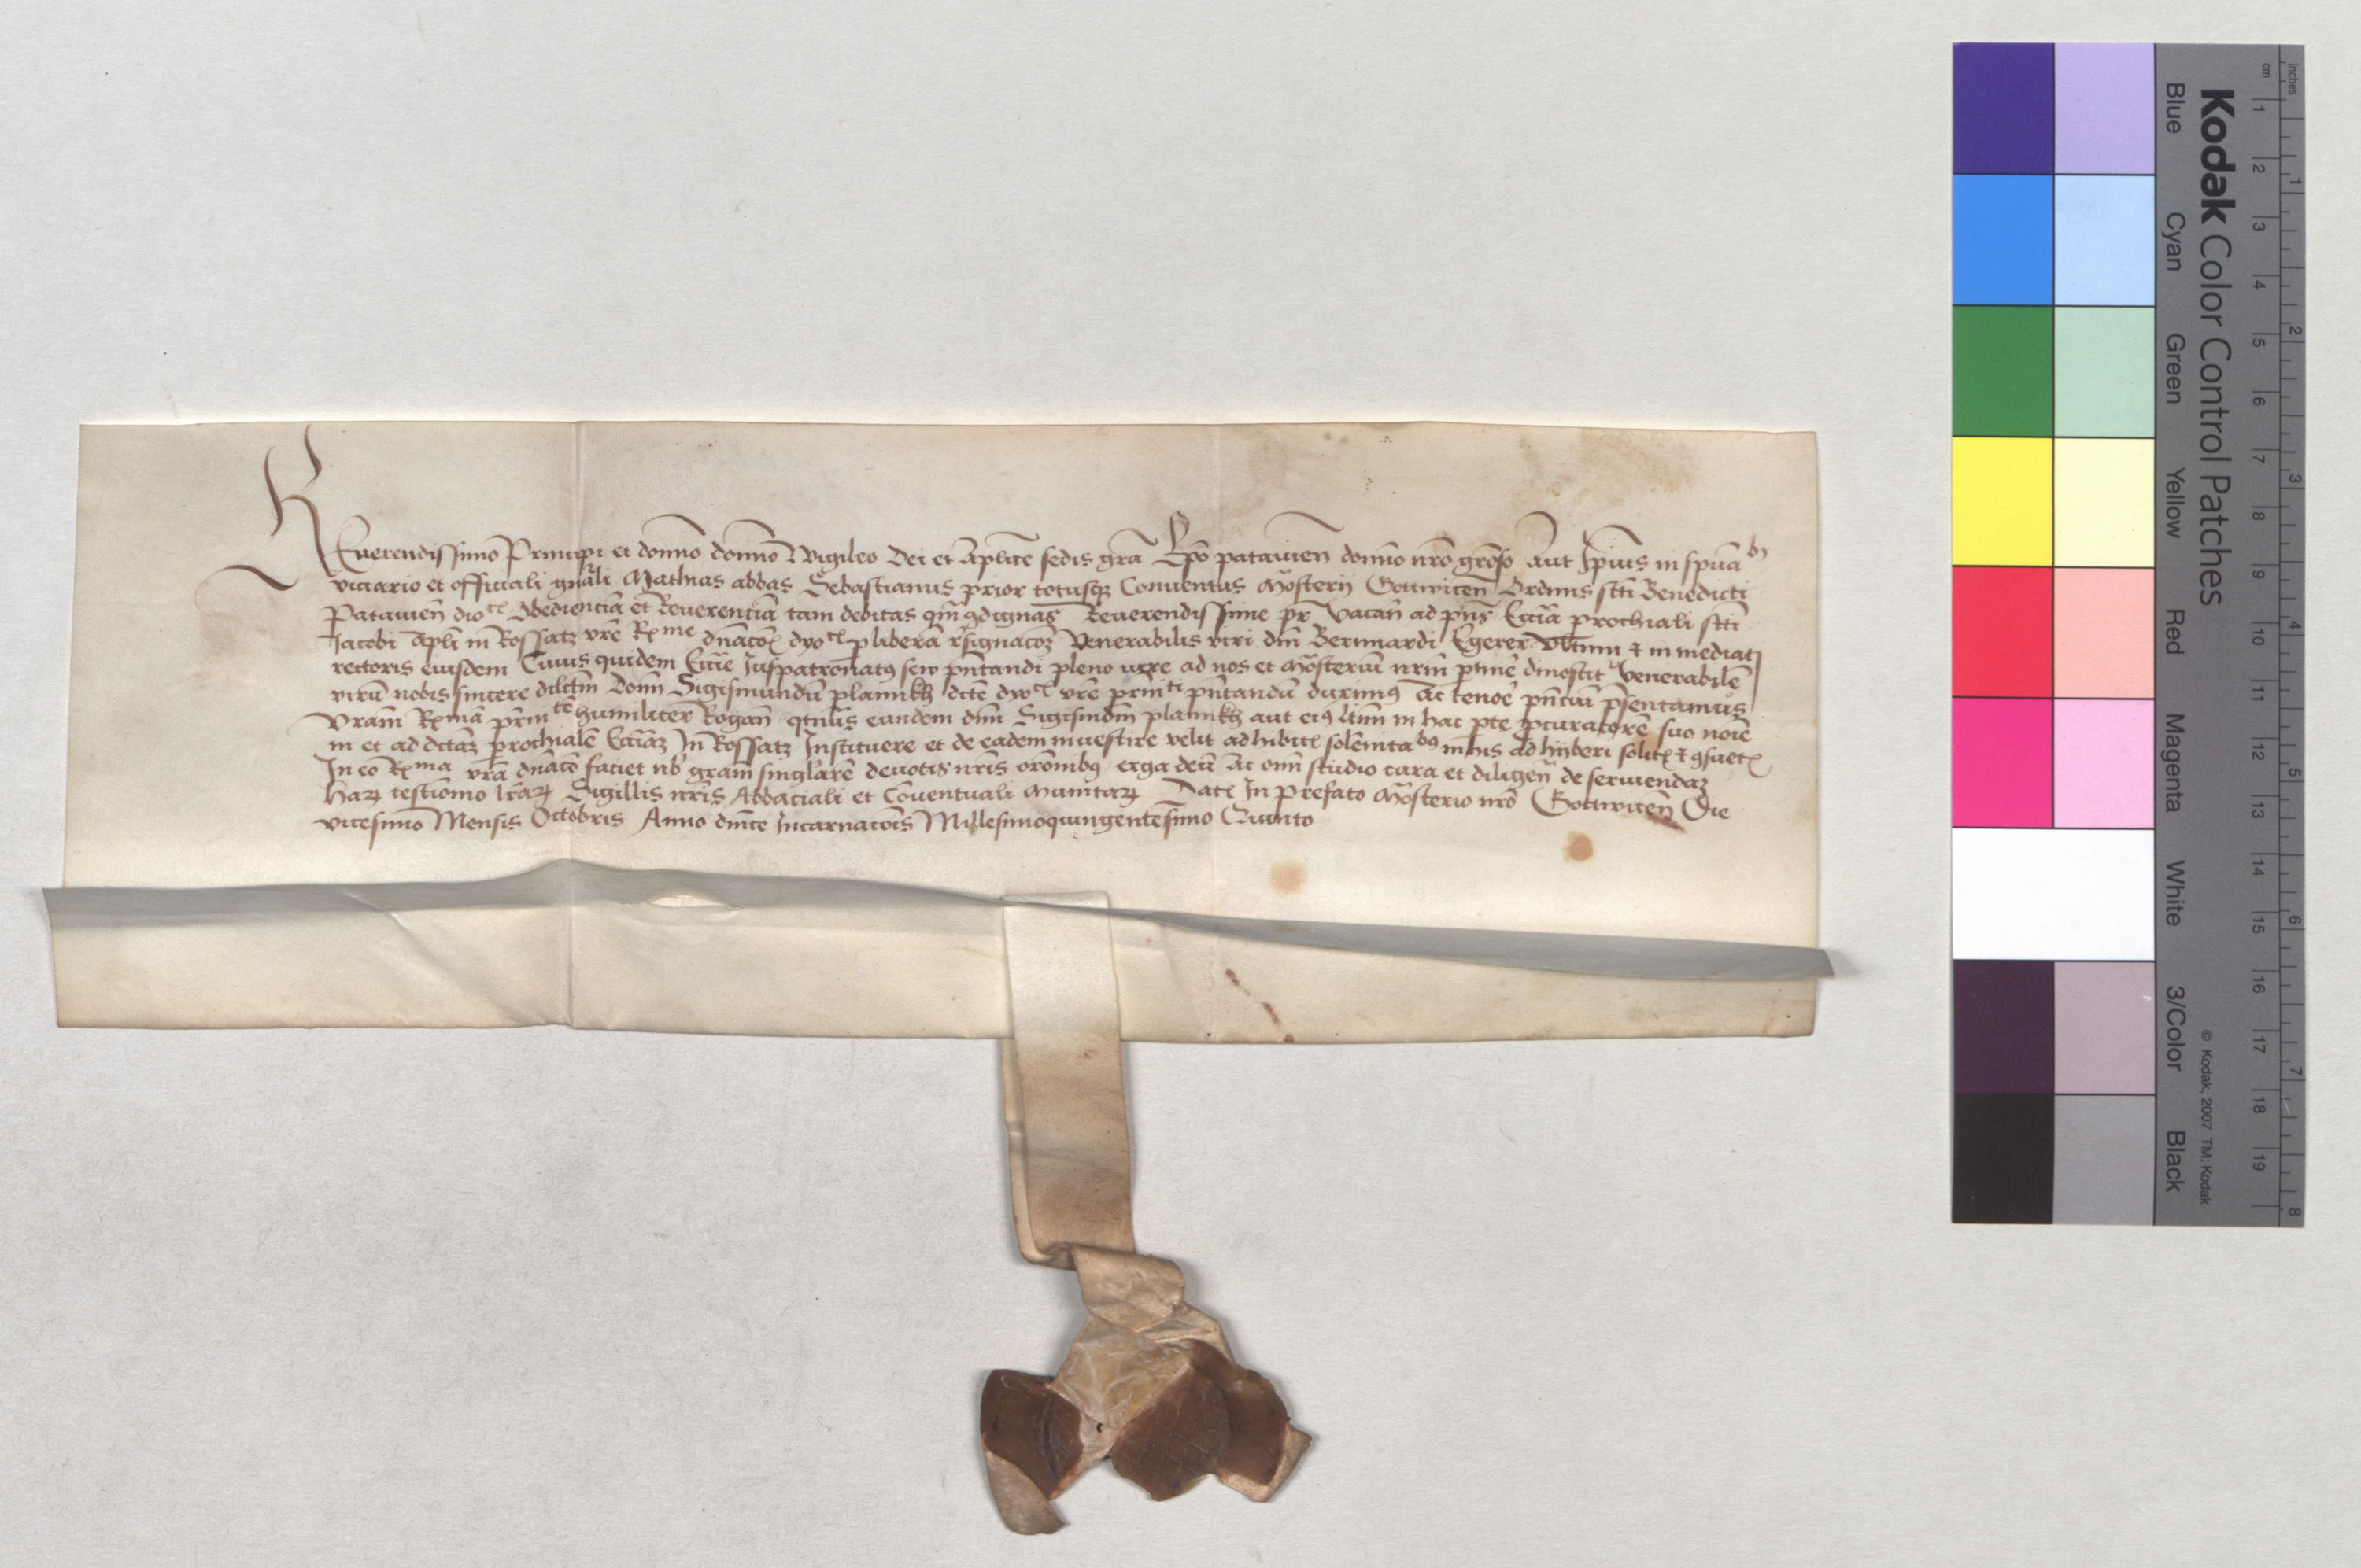 REuerendissimo Principi et domno domno Wigileo Dei et Aplice sedis gra Epo patauien domno nro groso Aut Ipius in spualibus
vicario et officiali gnali Mathias abbas Sebastianus prior totusq Conuentus Mosterij Gottwicen Ordinis scti Benedicti
Patauien dioc Obedienciam et Reuerenciam tam debitas qm 9dignas Reuerendissime pr Vacan ad pns Eccia prochiali scti
Jacobi apli in Rossatz vre Rme dnacois dyoc p libera resignacoz Venerabilis viri dni Bernnardi Egerer Vltimi et inmediati
rectoris eiusdem Cuius quidem Eccie Juspatronatus sew pntandi pleno iure ad nos et Mosterium nrm ptine dinoscit Venerabilem
virum nobis sincere dilctm Domn Sigismundum plannkh dcte dioc vre prnti pntandum duximus Ac tenore pncium presentamus
Vram Rmam prnitem humiliter Rogan qtnus eundem dnm Sigismdm plannkh aut eius ltim in hac pte procuratorem suo noie
in et ad dctam prochialem Ecciam In Rossatz Instituere et de eadem inuestire velit adhibitis solemnitatibus in his adhiberi solitis et 9suetis
In eo Rma vra dnaco faciet nob gram singlarem deuotis nris orombus erga deum Ac omni studio cura et diligen deseruiendam
Harum testiomo lrarum Sigillis nris Abbaciali et Conuentuali Munitarum Dat In prefato Mosterio nro Gottwicen Die
vicesimo Mensis Octobris Anno dnice Incarnacois Millesimoquingentesimo Quinto
Kodak Color Control Patches
Blue Cyan Green Yellow Red Magenta White 3/Color Black
© Kodak, 2007 TM: Kodak
cm 1 2 3 4 5 6 7 8 9 10 11 12 13 14 15 16 17 18 19
inches 1 2 3 4 5 6 7 8